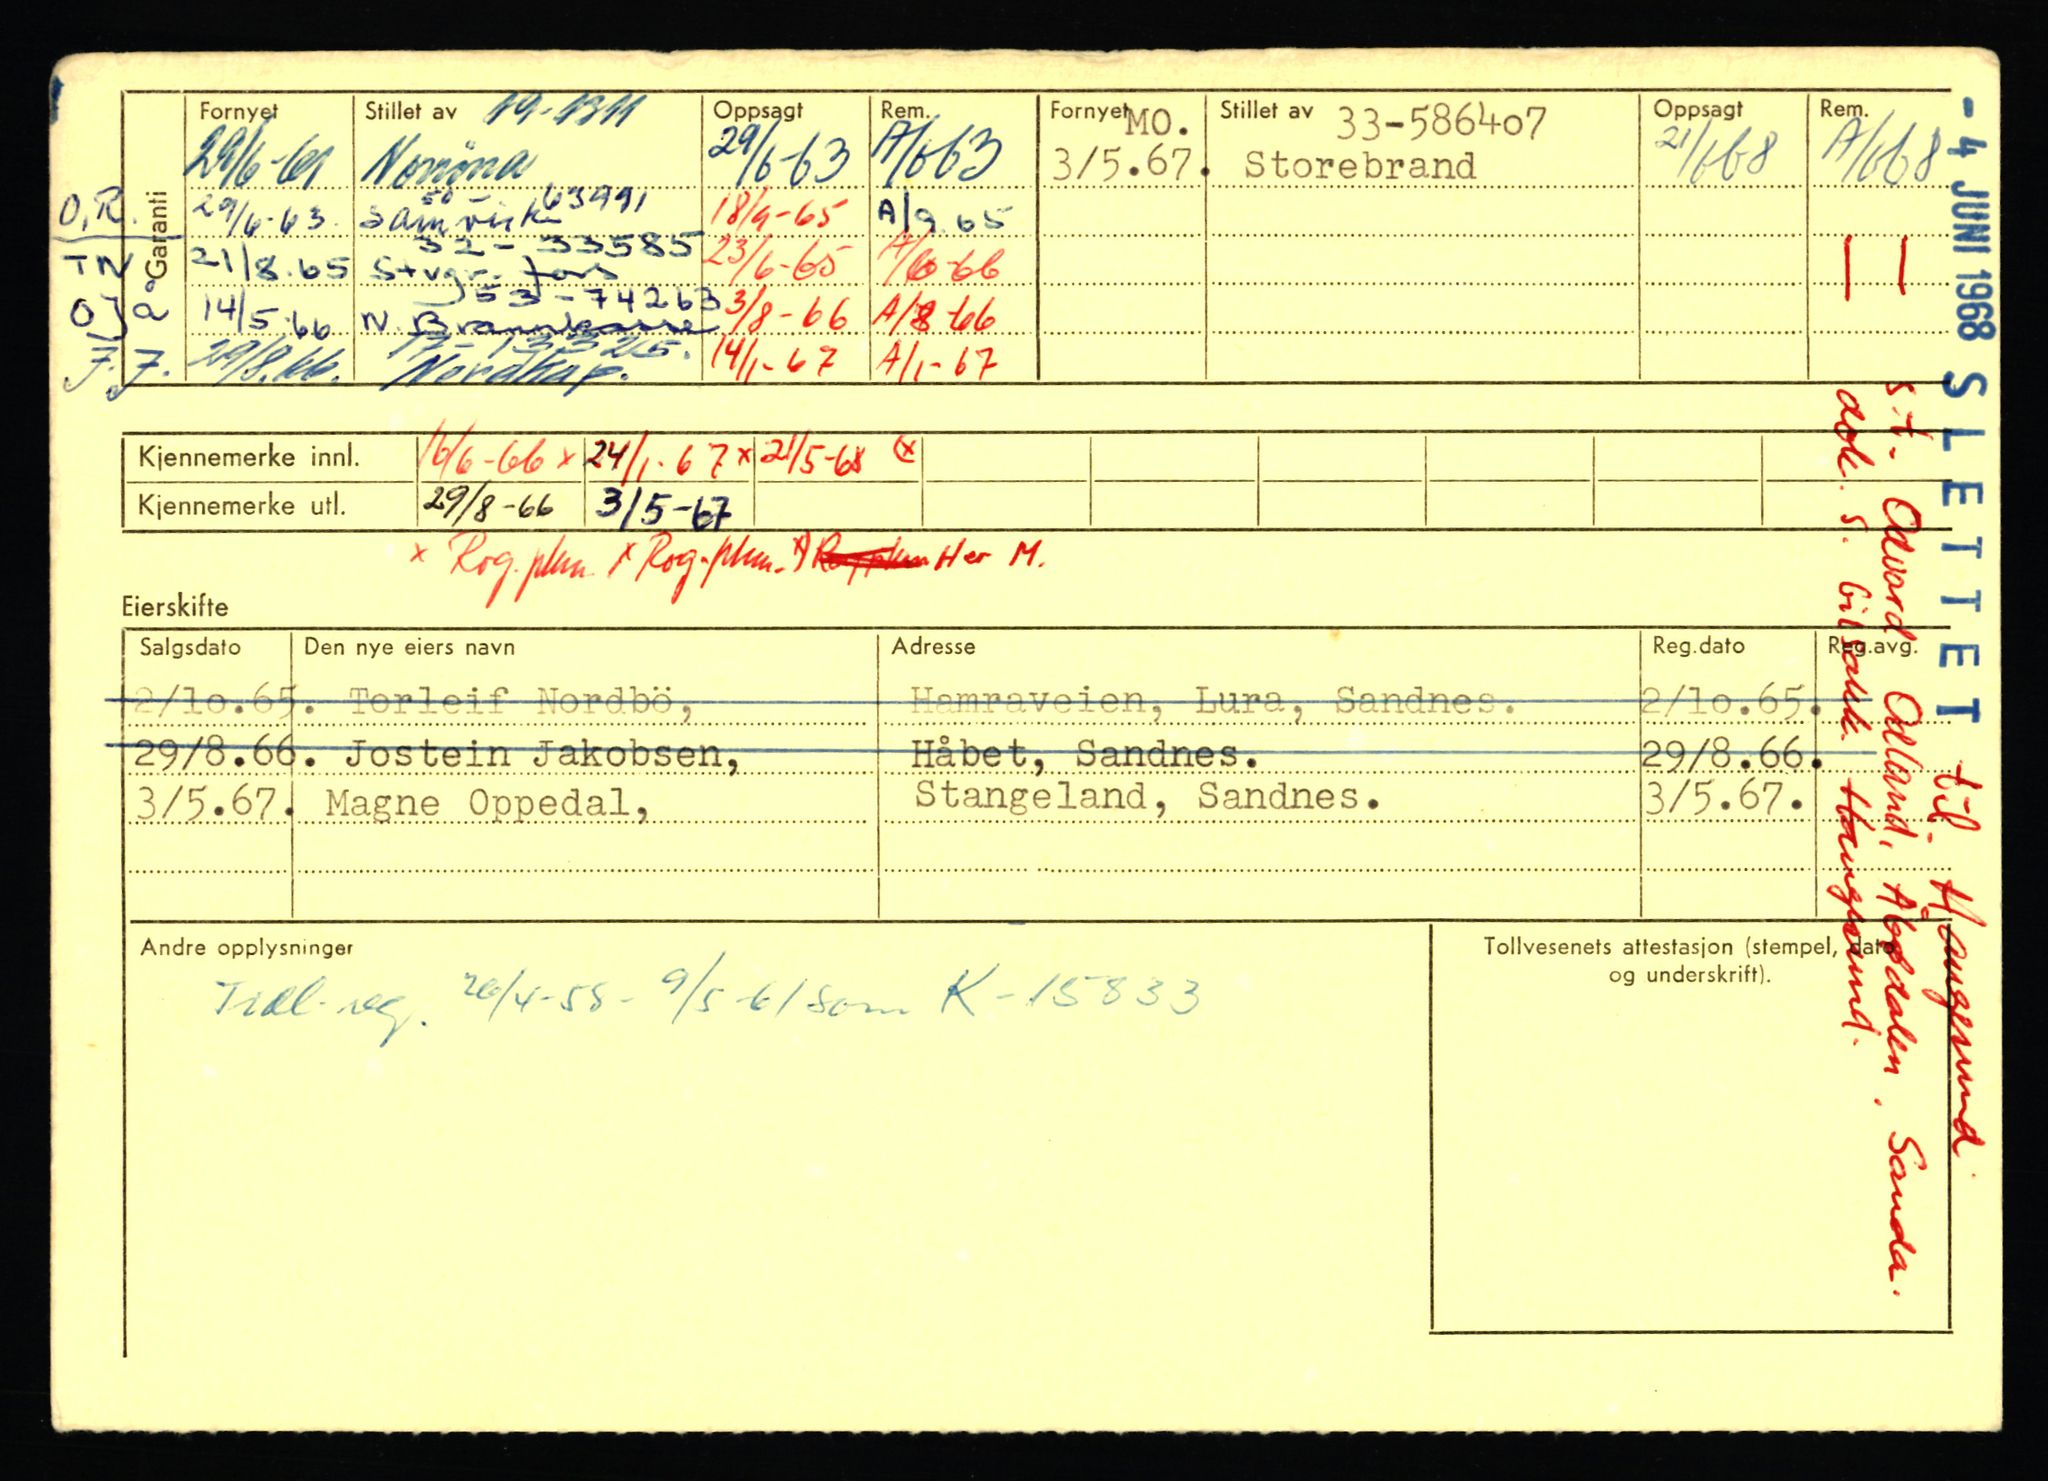 Garanti
Fornyet Stillet av 19-1311 Oppsagt Rem. Fornyet MO. Stillet av 33-586407 Oppsagt Rem.
29/6-61 Norröna 29/6-63 A/6 63 3/5.67. Storebrand 21/6 68 A/6 68
50 - 63991
O.R. 29/6-63 Samvirke 18/9-65 A/9 65
32 - 33585
TN 21/8.65 Stvgr. fors 23/6-65 A/6-66
53-74263
OJa 14/5.66 N. Brannkasse 3/8-66 A/8-66
J.J. 29/8.66. Nordkap. 14/1-67 A/1-67
Kjennemerke innl. 16/6-66 x 24/1-67 x 21/5-68 (x
Kjennemerke utl. 29/8-66 3/5-67
x Rog.phm. x Rog.phm. x) Her M.
Eierskifte
Salgsdato Den nye eiers navn Adresse Reg.dato Reg.avg.
2/10.65. Torleif Nordbö, Hamraveien, Lura, Sandnes. 2/10.65.
29/8.66. Jostein Jakobsen, Håbet, Sandnes. 29/8.66.
3/5.67. Magne Oppedal, Stangeland, Sandnes. 3/5.67.
Andre opplysninger
Tidl. reg. 26/4-58 - 9/5-61 som K-15833
Tollvesenets attestasjon (stempel, dato
og underskrift).
- 4 JUNI 1968 SLETTET til Haugesund
s.t. Odvard Odland, Åbødalen, Sanda.
dok. s. bilsakk. Haugesund.